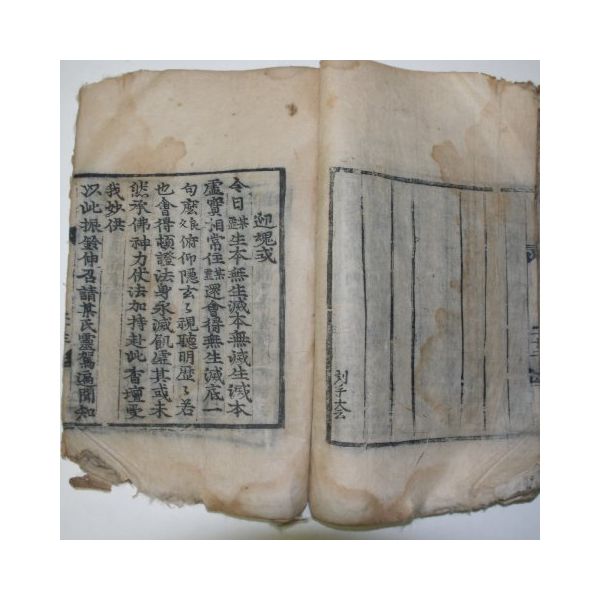 刘手大会
迎魂或
今日某靈生本無生滅本無滅生滅本
虛實相常住某靈還會得無生滅底一
句麽良久俯仰隱玄〻視聽明歷〻若
也會得頓證法身永滅飢虛其或未
然承佛神力仗法加持赴此香壇受
我妙供
以此振鈴伸召請某氏靈駕遙聞知